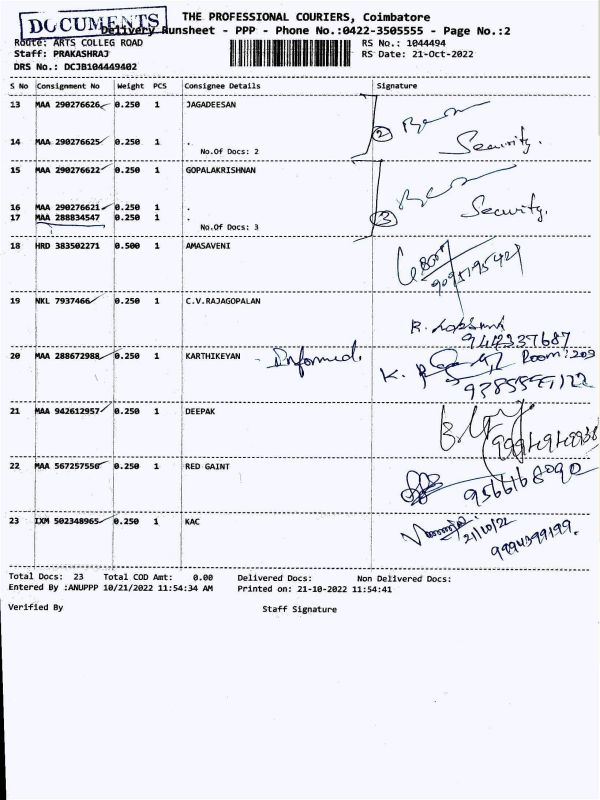 DOCUMENTS
THE PROFESSIONAL COURIERS, Coimbatore
Delivery Runsheet - PPP - Phone No.:0422-3505555 - Page No.:2
Route: ARTS COLLEG ROAD
RS No.: 1044494
Staff: PRAKASHRAJ
RS Date: 21-Oct-2022
DRS No.: DCJB104449402
S No Consignment No Weight PCS Consignee Details Signature
13 MAA 290276626 0.250 1 JAGADEESAN
2
14 MAA 290276625 0.250 1 .
Security.
No.Of Docs: 2
15 MAA 290276622 0.250 1 GOPALAKRISHNAN
16 MAA 290276621 0.250 1 .
Security.
17 MAA 288834547 0.250 1 .
3
No.Of Docs: 3
18 HRD 383502271 0.500 1 AMASAVENI
19 NKL 7937466 0.250 1 C.V.RAJAGOPALAN
9442337687
20 MAA 288672988 0.250 1 KARTHIKEYAN - Informed.
Room: 209
K.
21 MAA 942612957 0.250 1 DEEPAK
22 MAA 567257556 0.250 1 RED GAINT
9566168090
23 IXM 502348965 0.250 1 KAC
21/10/22
9994399199.
Total Docs: 23 Total COD Amt: 0.00 Delivered Docs: Non Delivered Docs:
Entered By :ANUPPP 10/21/2022 11:54:34 AM Printed on: 21-10-2022 11:54:41
Verified By Staff Signature